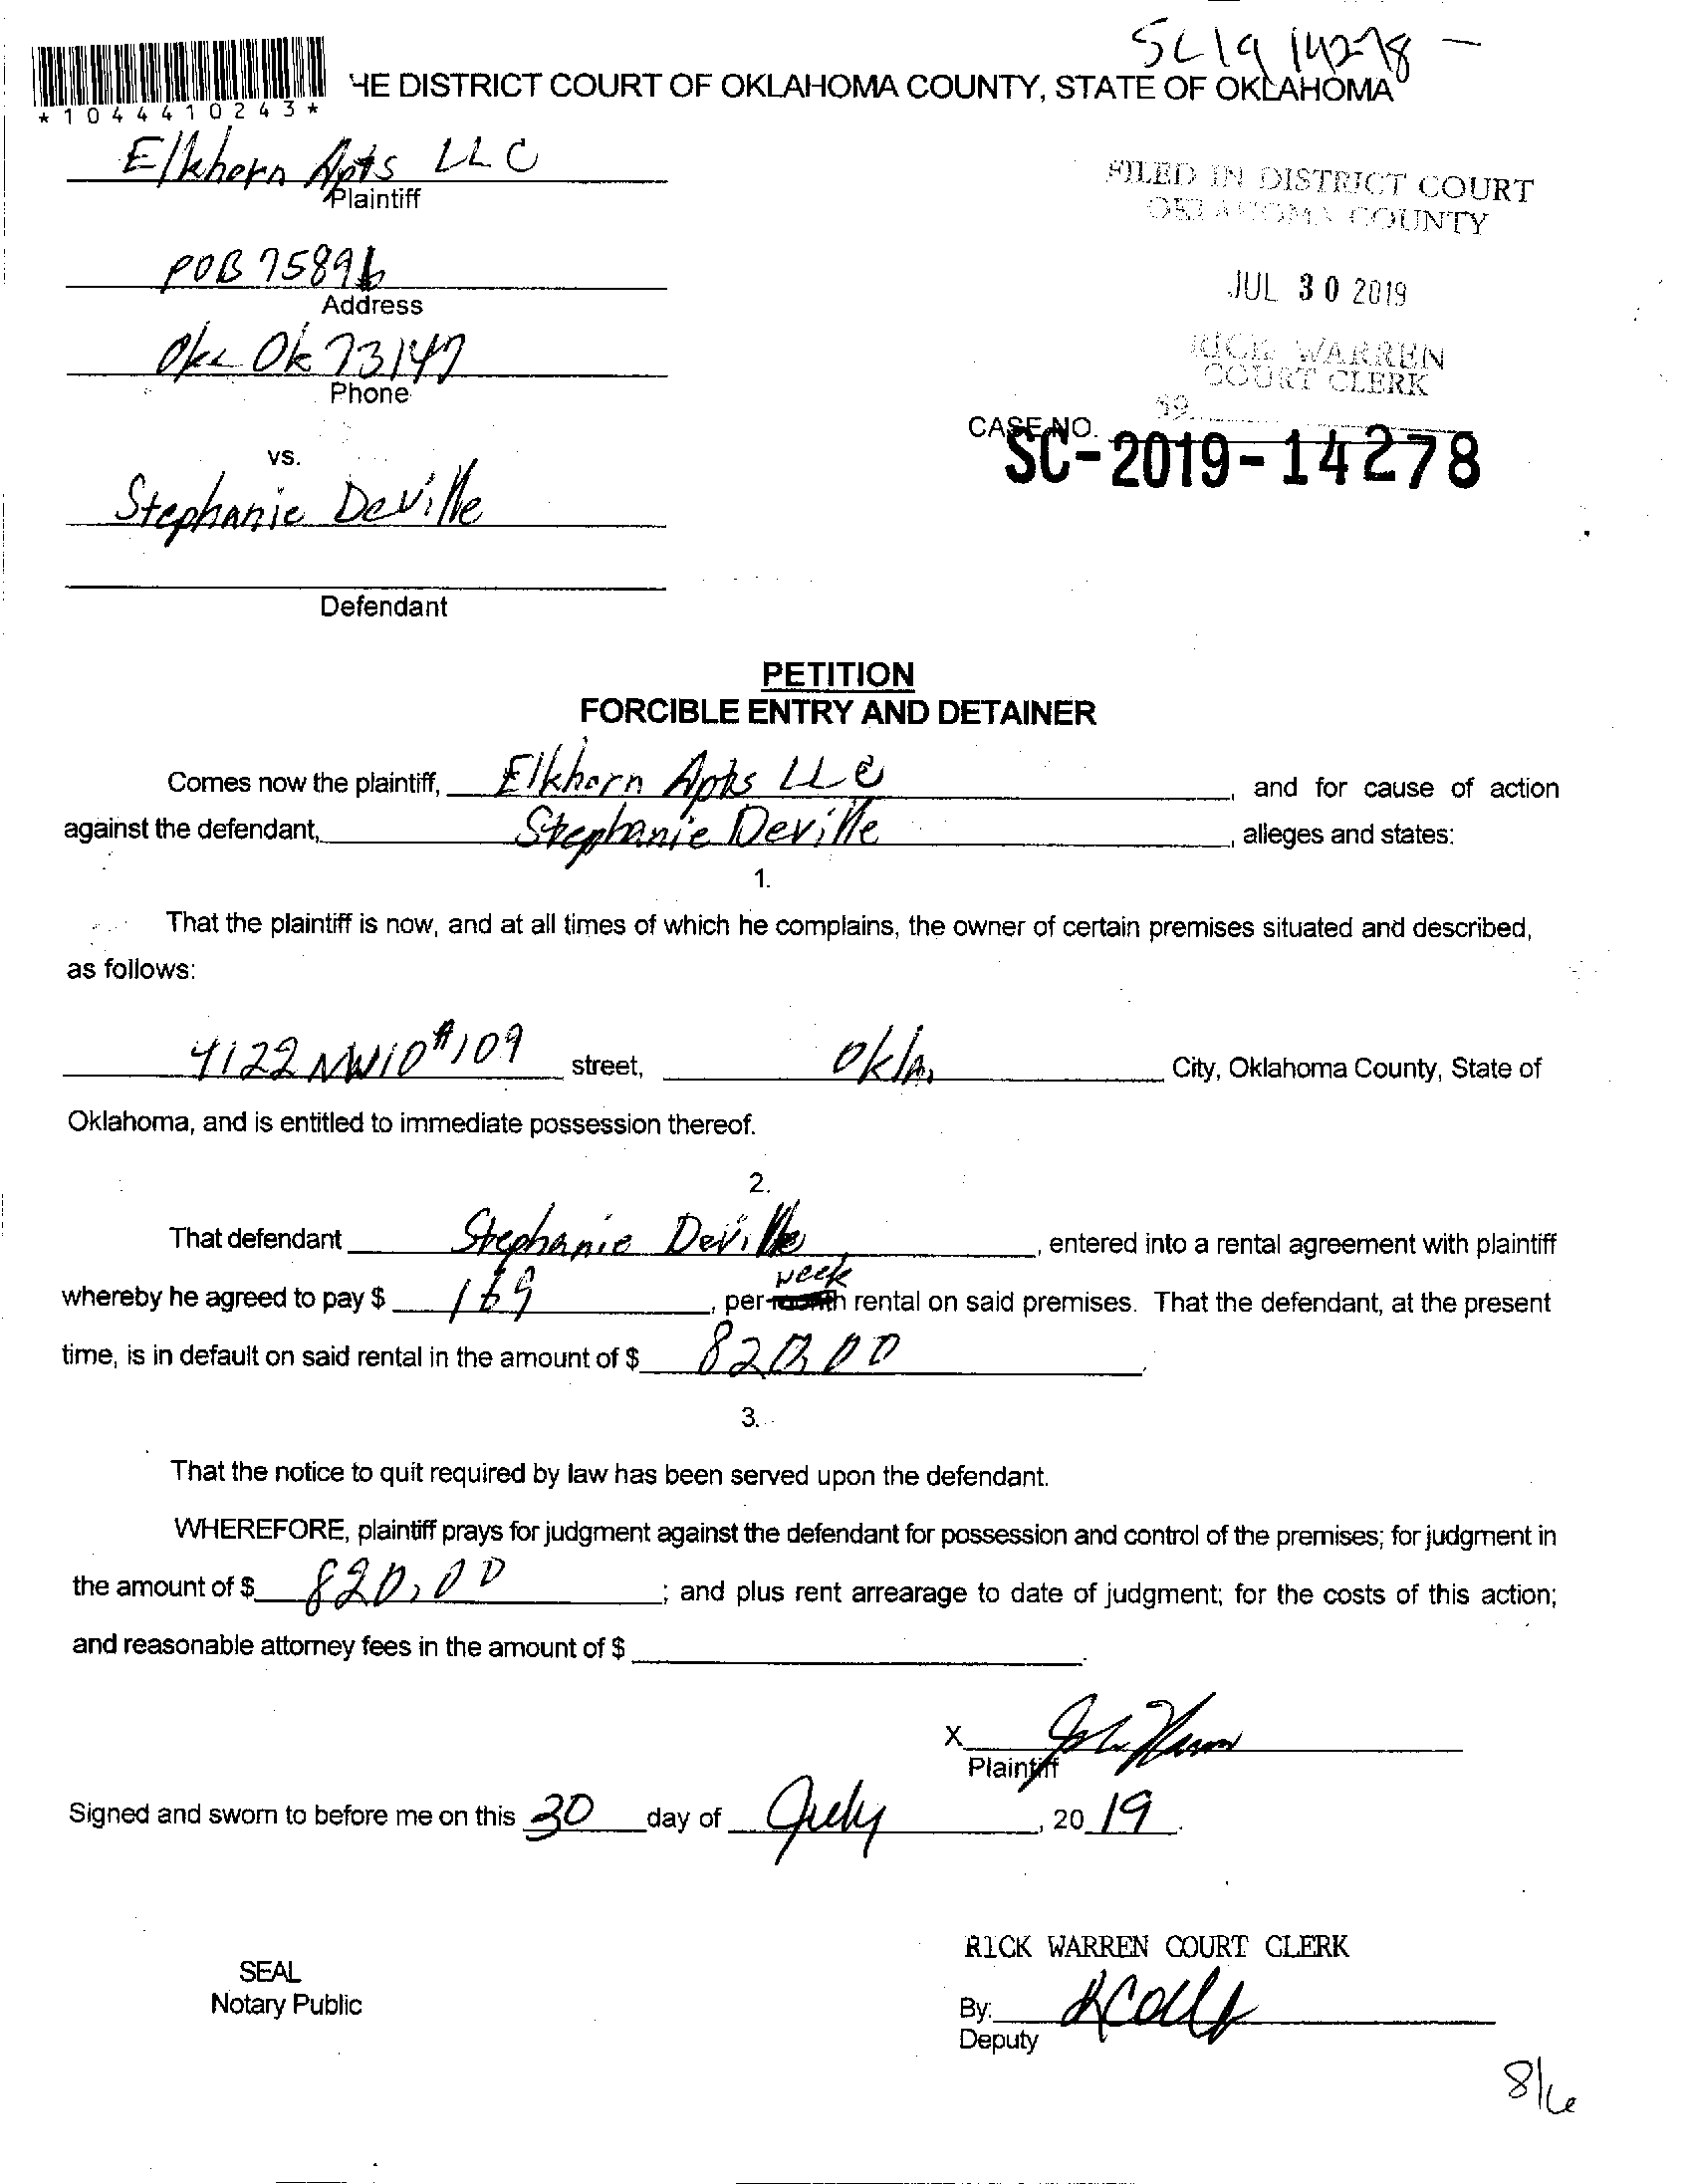 SC19 14278 -
HE DISTRICT COURT OF OKLAHOMA COUNTY, STATE OF OKLAHOMA
*1044410243*
Elkhorn Apts LLC
Plaintiff
FILED IN DISTRICT COURT
OKLAHOMA COUNTY
POB 75896
Address
JUL 30 2019
Okc Ok 73147
Phone
RICK WARREN
COURT CLERK
39
CASE NO.
SC-2019-14278
vs.
Stephanie Deville
Defendant
PETITION
FORCIBLE ENTRY AND DETAINER
Comes now the plaintiff, Elkhorn Apts LLC, and for cause of action
against the defendant, Stephanie Deville, alleges and states:
1.
That the plaintiff is now, and at all times of which he complains, the owner of certain premises situated and described,
as follows:
4122 NW10 #109 street, Okla, City, Oklahoma County, State of
Oklahoma, and is entitled to immediate possession thereof.
2.
That defendant Stephanie Deville, entered into a rental agreement with plaintiff
week
whereby he agreed to pay $ 169, per month rental on said premises. That the defendant, at the present
time, is in default on said rental in the amount of $ 820.00.
3.
That the notice to quit required by law has been served upon the defendant.
WHEREFORE, plaintiff prays for judgment against the defendant for possession and control of the premises; for judgment in
the amount of $ 820,00; and plus rent arrearage to date of judgment; for the costs of this action;
and reasonable attorney fees in the amount of $ .
X
Plaintiff
Signed and sworn to before me on this 30 day of July, 20 19.
RICK WARREN COURT CLERK
SEAL
Notary Public
By:
Deputy
8/6